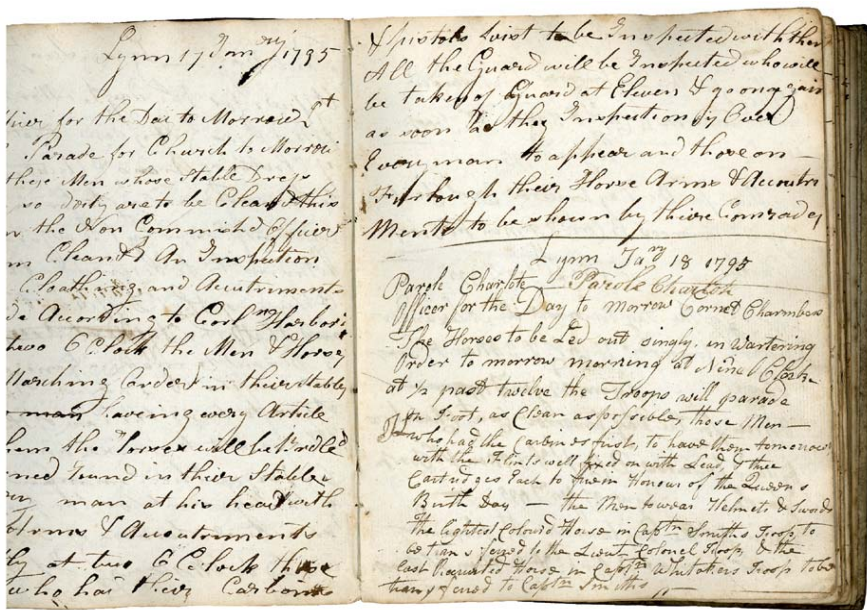 Lynn 17 Janry 1795
for the Day to Morrow
Parade for Church to Morrow
these Men whose Stable Dress
so dirty are to be Cleand this
the Non Commishd Officers
Cleand An Inspection
Cloathing and Acutriments
According to Corl Harbord
two O Clock the Men & Horses
Marching Order in thier Stables
man haveing every Article
them the Horses will be Bridled
round in thier Stables
man at his head with
Arms & Acoutriments
at two O Clock those
who has thier Carbines
& pistols first to be Inspected with them
All the Guard will be Inspected who will
be taken of Guard at Eleven & go on again
as soon as they Inspection is Over
Every man to appear and those on
Furlough their Horse Arms & Acoutri
Ments to be shown by thire Comrades
Lynn Jary 18 1795
Parole Charlote - Parole Charlote
Officer for the Day to Morrow Cornet Chambers
The Horses to be Led out singly in Wartering
Order to morrow morning at Nine O Clock
at ½ past twelve the Troops will parade
on Foot, as Clean as possible, those Men
who had the Carbines first, to have them tomorrow
with the Flints well fixed on with Lead, & three
Cartridges Each to them Honours of the Queens
Birth Day - the Men to wear Helmets & Swords
the lightest Colourd Horse in Captn Smiths Troop to
be transfered to the Lieut Colonel Troop & the
last Recruited Horse in Captn Whitakers Troop to be
transfered to Captn Smiths